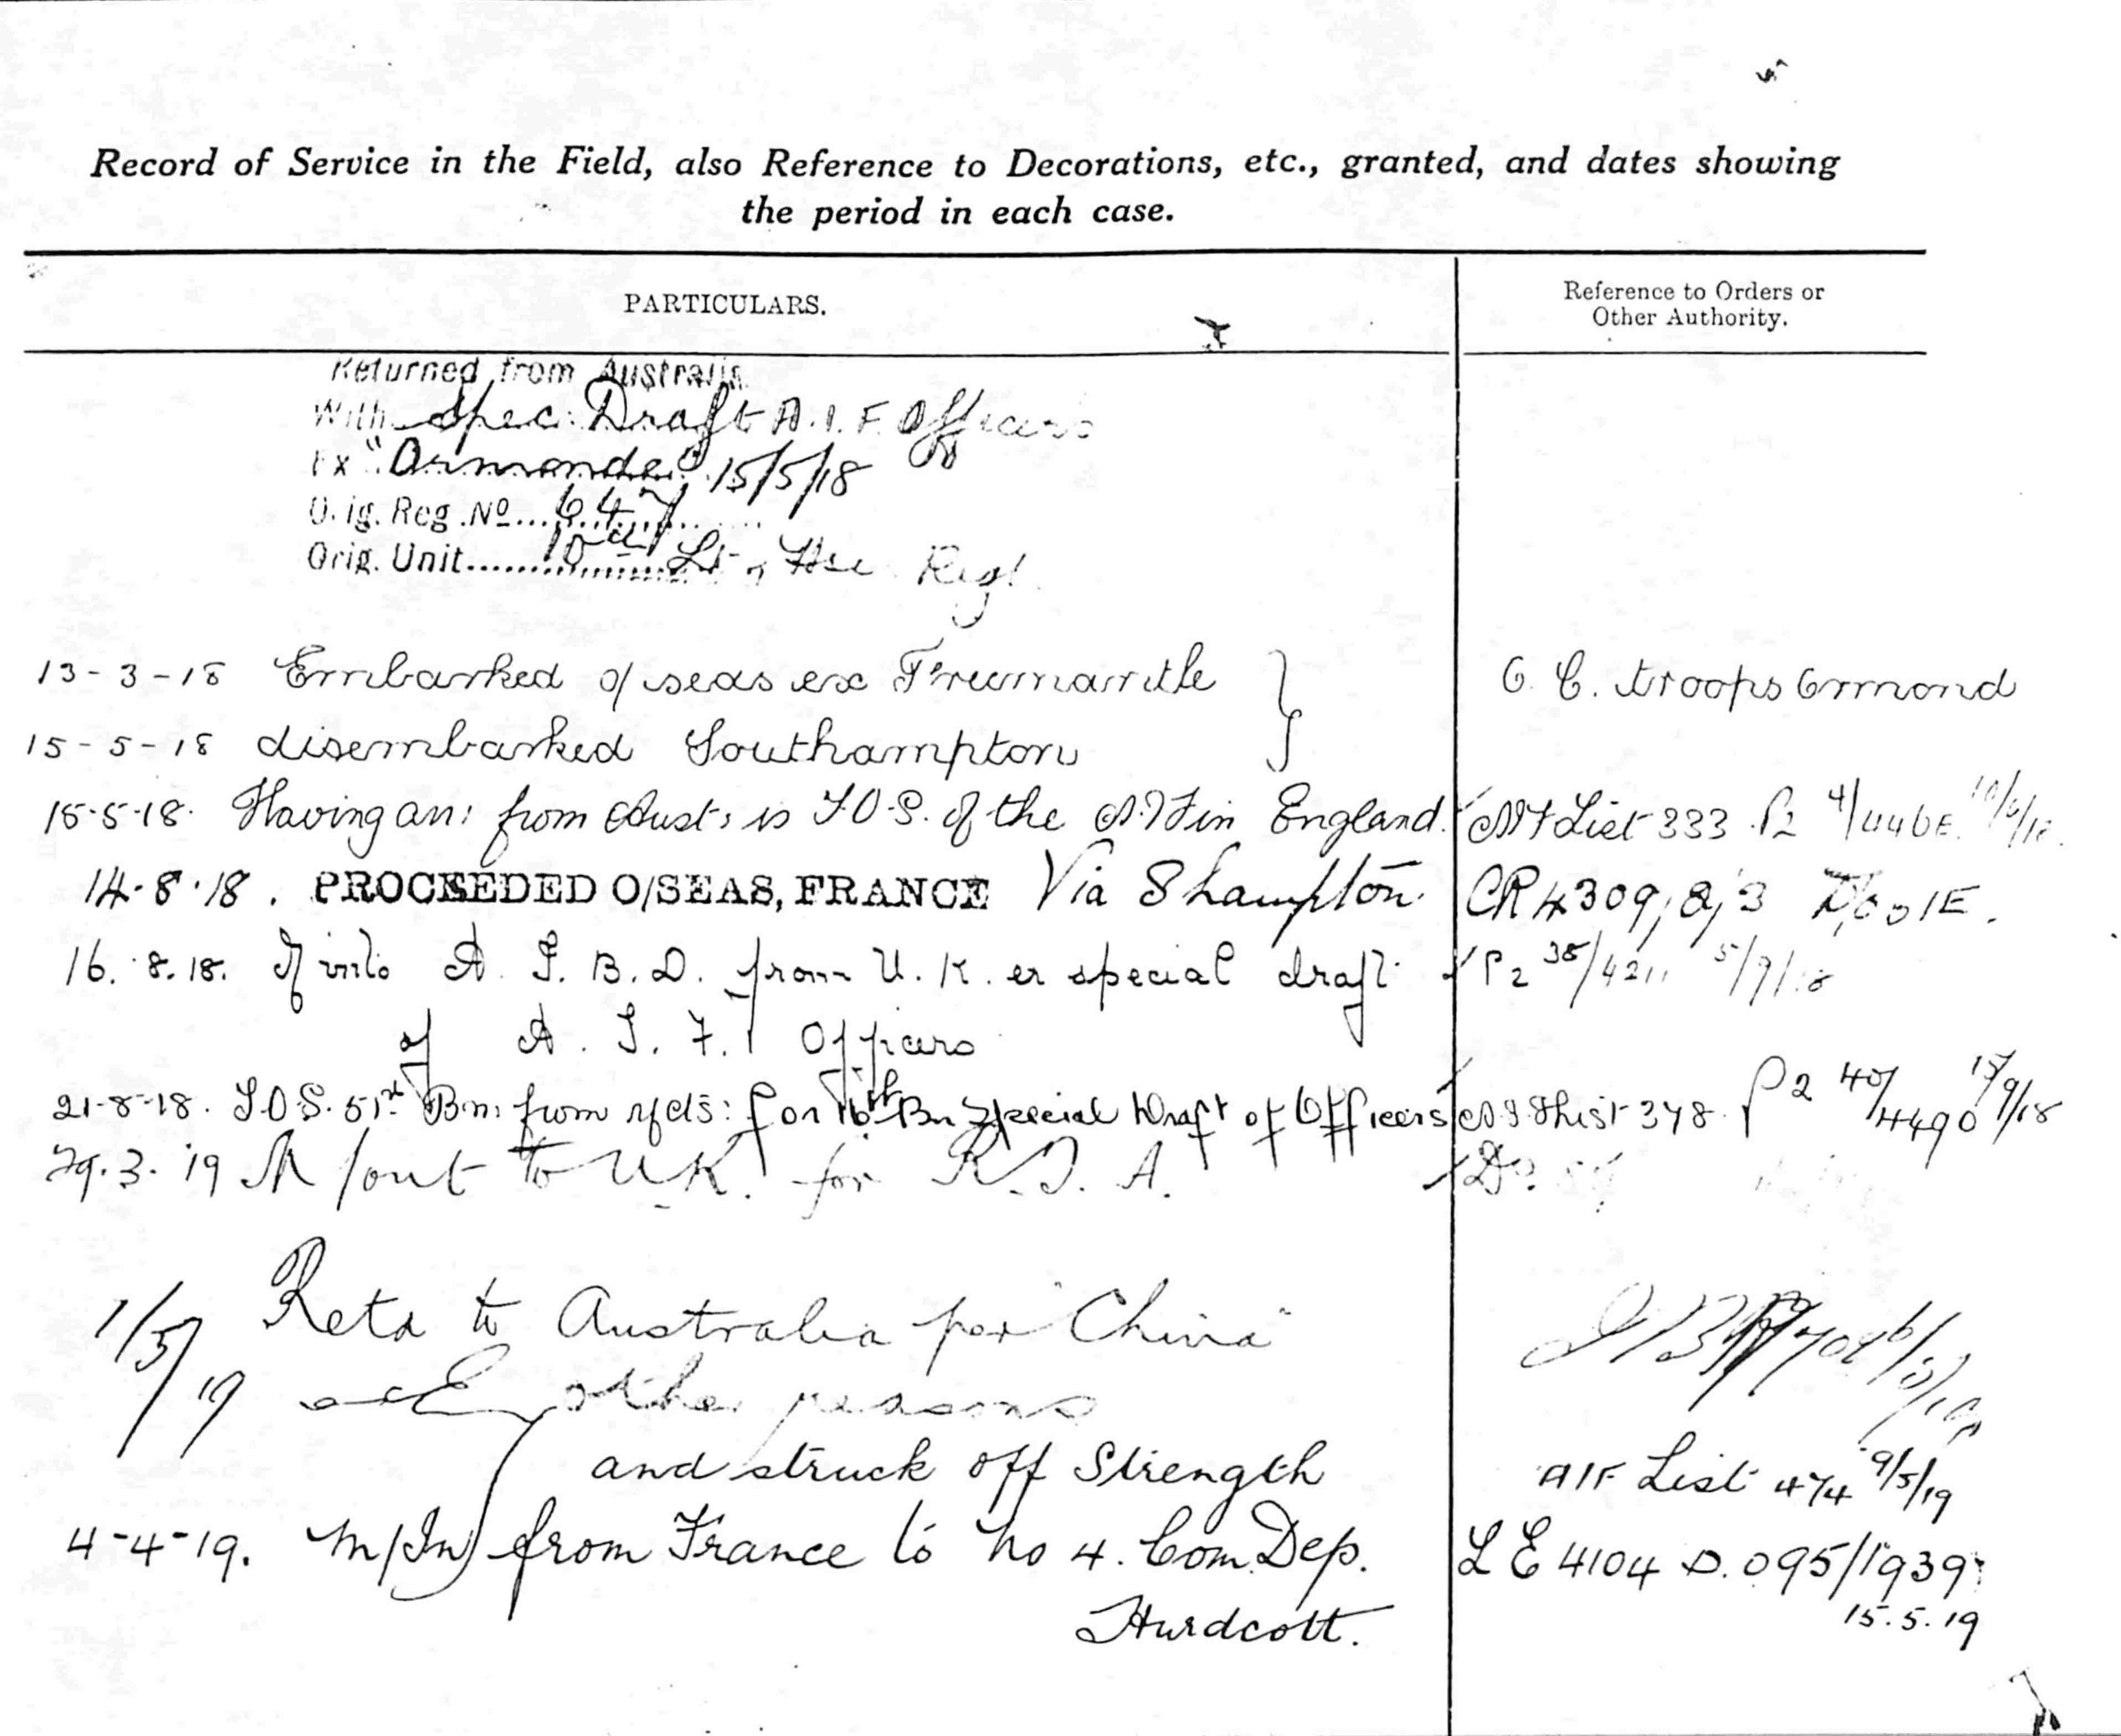 Record of Service in the Field, also Reference to Decorations, etc., granted, and dates showing
the period in each case.
PARTICULARS.
Reference to Orders or
Other Authority.
Returned from Australia
With Spec. Draft A.I.F. Officers
Ex "Ormonde" 15/5/18
Orig. Reg. No... 647
Orig. Unit... 10th Lt. Hse Regt
13-3-18 Embarked o/seas ex Freemantle
O. C. troops Ormond
15-5-18 disembarked Southampton
15-5-18. Having arr: from Aust: is T.O.S. of the A.I.F in England.
AIF List 333 P2 4/446E 10/6/18.
14-8-18. PROCEEDED O/SEAS, FRANCE Via S'hampton
CR 4309, 8/3
16.8.18. M into A. I. B. D. from U. K. ex special draft
P2 38/4211 5/9/18
of A. I. F. Officers
21-8-18. T.O.S. 51st Bn: from rfcts: for 16th Bn Special Draft of Officers
AIF List 378 P2 40/4490 17/9/18
29.3.19 M/out to U.K. for R.T.A.
Do.
1/5/19 Retd to Australia per "China"
other reasons
and struck off Strength
AIF List 474 9/5/19
4-4-19. M/In from France to No 4. Com Dep.
LE 4104 D. 095/1939
Hurdcott.
15.5.19